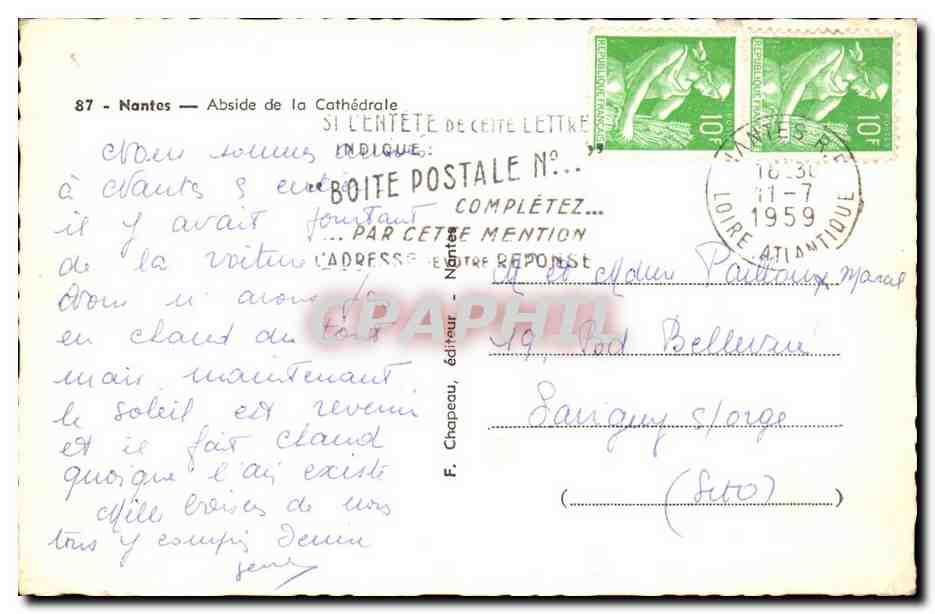 87 - Nantes — Abside de la Cathédrale
SI L'ENTÊTE DE CETTE LETTRE
INDIQUE:
"BOITE POSTALE N°..."
COMPLÉTEZ...
...PAR CETTE MENTION
L'ADRESSE DE VOTRE REPONSE
REPUBLIQUE FRANÇAISE
POSTES
10F
REPUBLIQUE FRANÇAISE
POSTES
10F
NANTES R.P.
18 30
11-7
1959
LOIRE-ATLANTIQUE
Nous sommes
à Nantes
il y avait pourtant
de la voiture
Nous n'avons pas
eu chaud du tout
mais maintenant
le soleil est revenu
et il fait chaud
quoique l'air existe
Mille baisers de nous
tous y compris
F. Chapeau, éditeur - Nantes
M et Mdme Marcel
19, Bd Bellevue
Savigny s/orge
(S et O)
CPAPHIL